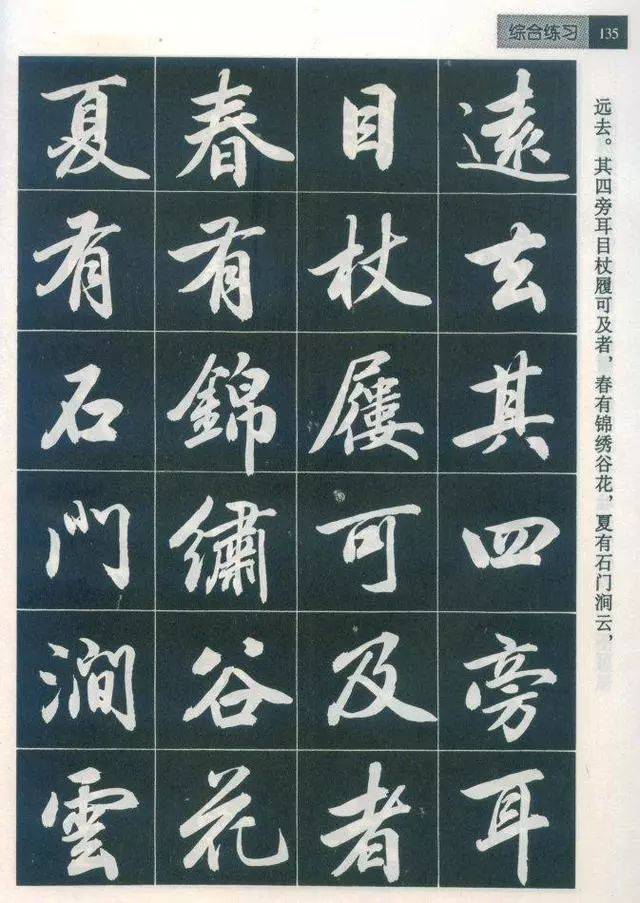 综合练习 135
遠去其四旁耳
目杖屨可及者
春有錦繡谷花
夏有石門澗雲
远去。其四旁耳目杖履可及者，春有锦绣谷花，夏有石门涧云，